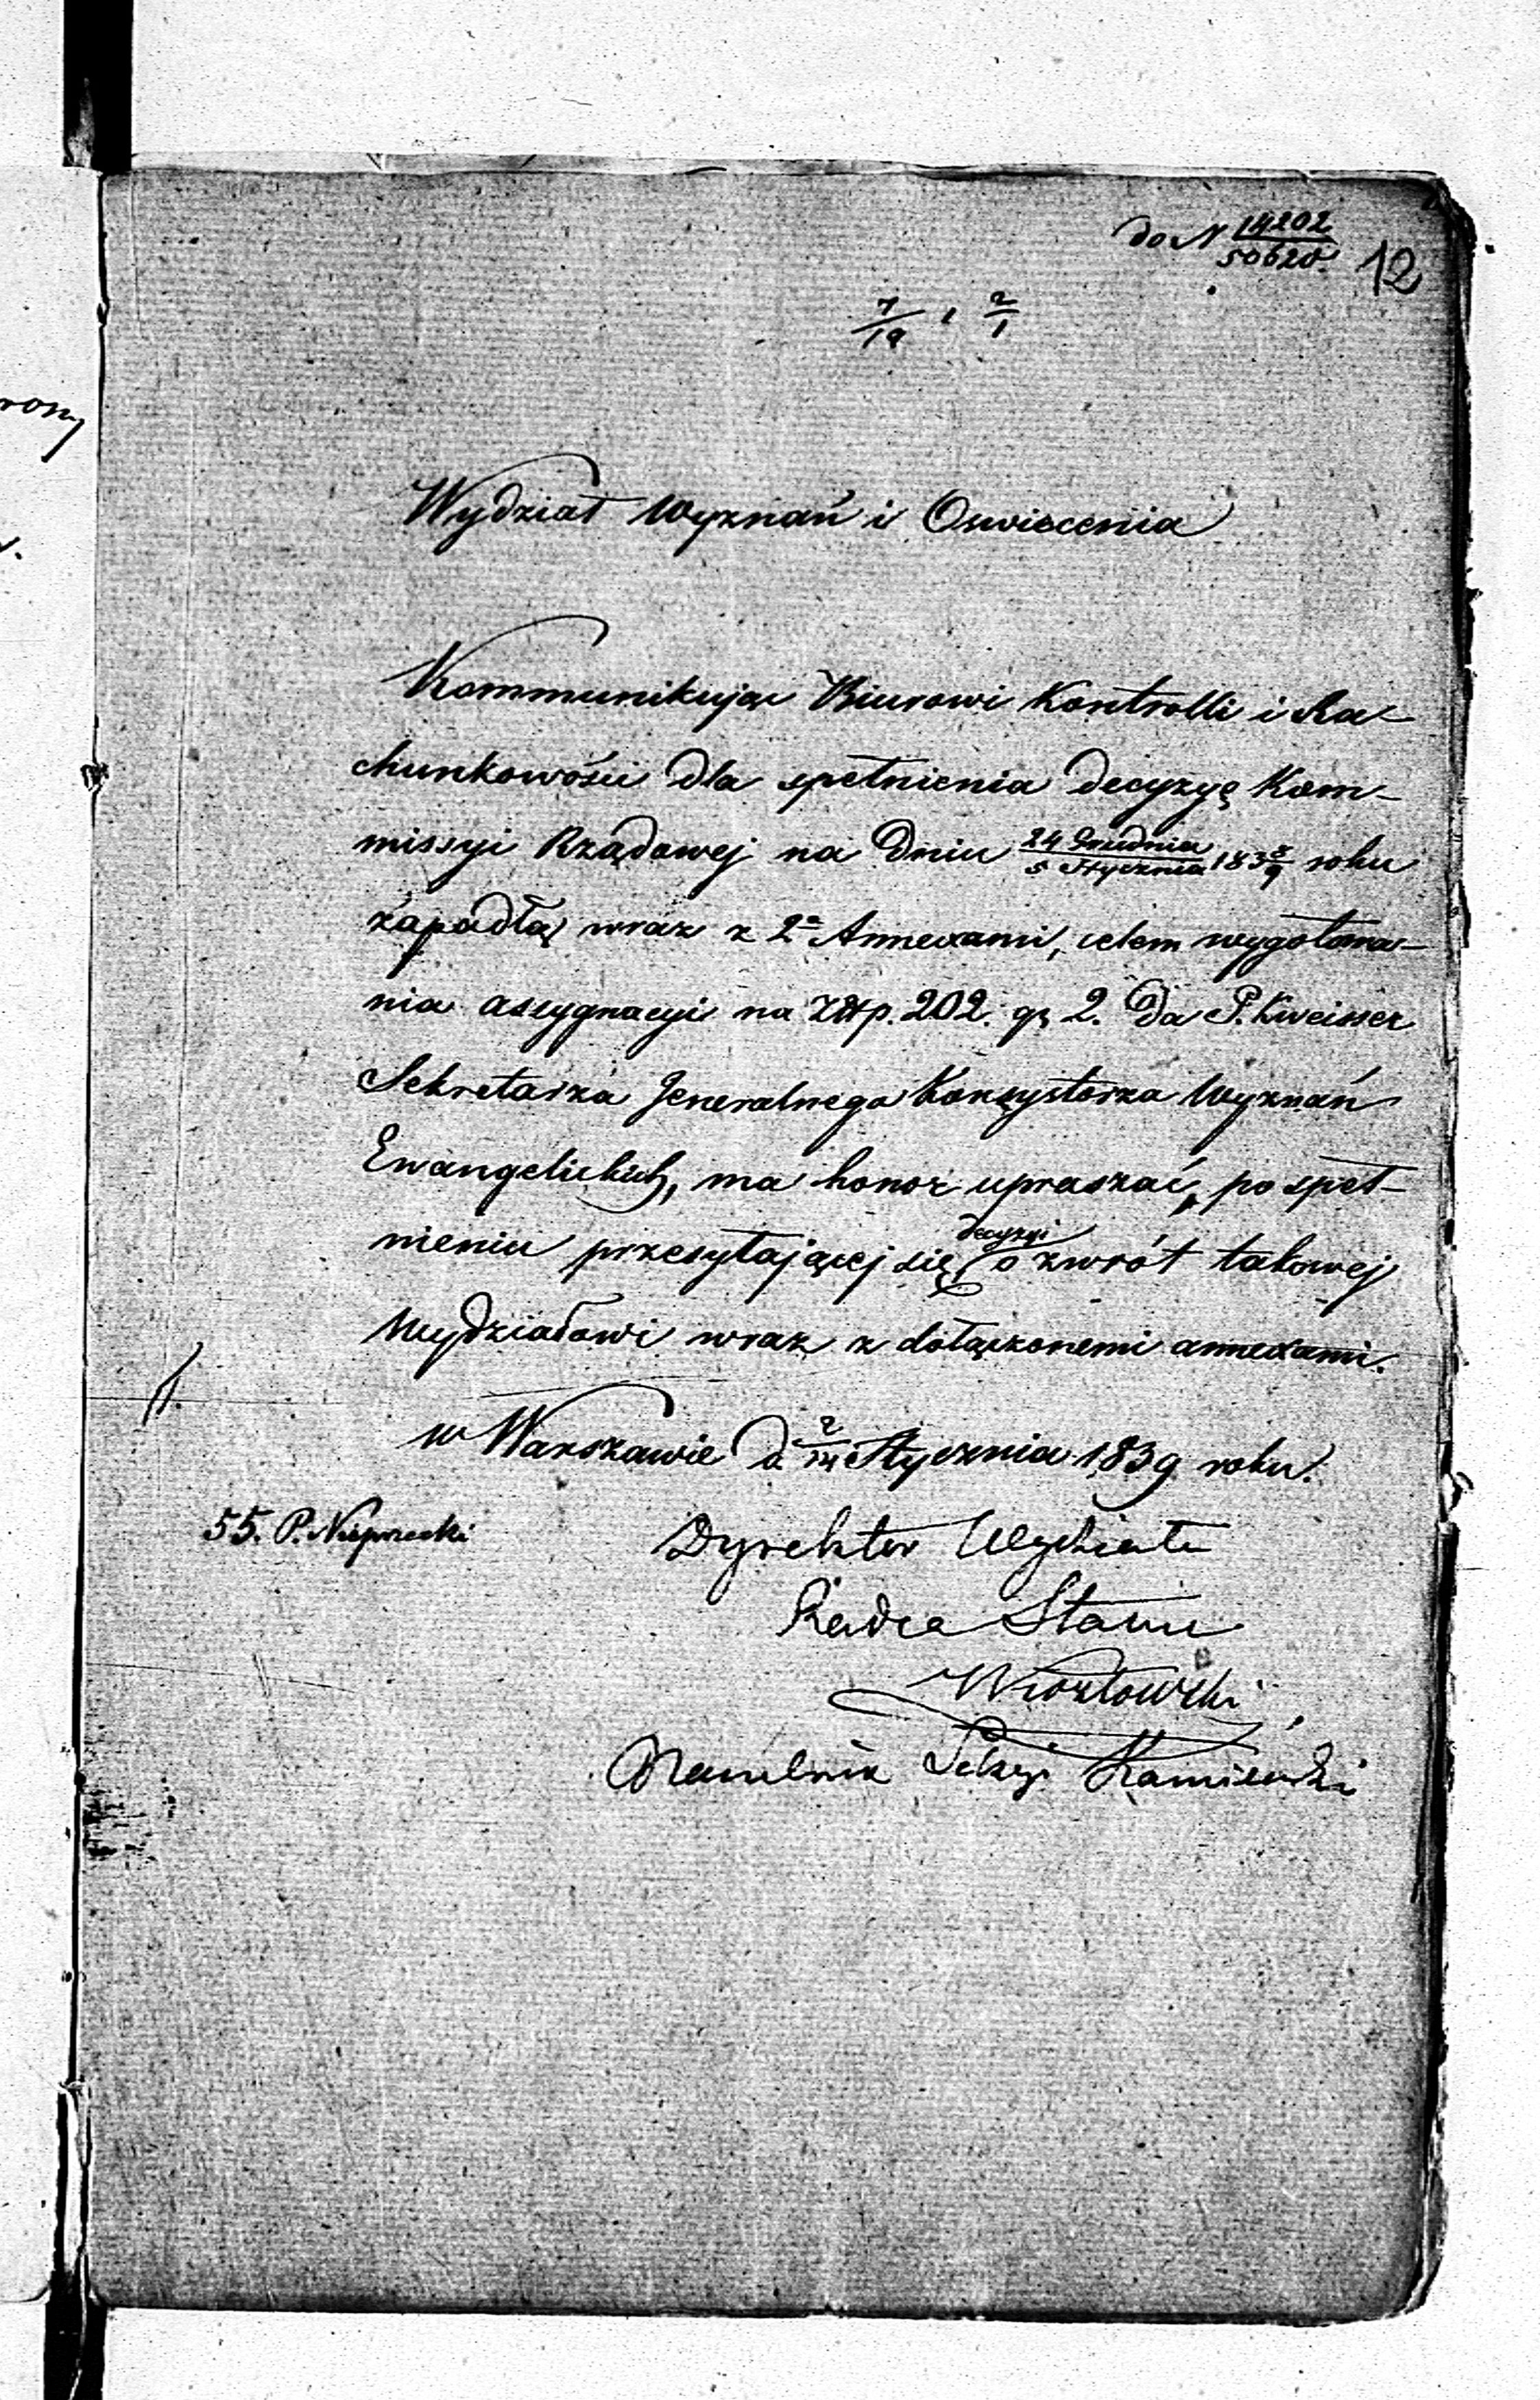 do N 14202/50620.
12
7/19 1 2/1
rony
Wydział Wyznań i Oswiecenia
Kommunikując Biurowi Kontrolli i Ra-
chunkowości dla spełnienia decyzyę Kom-
missyi Rządowej na dniu 24 Grudnia/5 Stycznia 183 8/9 roku
zapadłą wraz z 2a Annexami, celem wygotowa-
nia assygnacyi na Złtp. 202. gr 2. da P. Kweisser
Sekretarza Jeneralnego Konsystorza Wyznań
Ewangelickich, ma honor upraszać, po speł-
nieniu przesyłającej się decyzyi o zwrót takowej
Wydziałowi wraz z dołączonemi annexami.
w Warszawie d. 2/14 Stycznia 1839 roku.
55. P.
Dyrektor Wydziału
Radca Stanu
Naczelnik Sekcyi